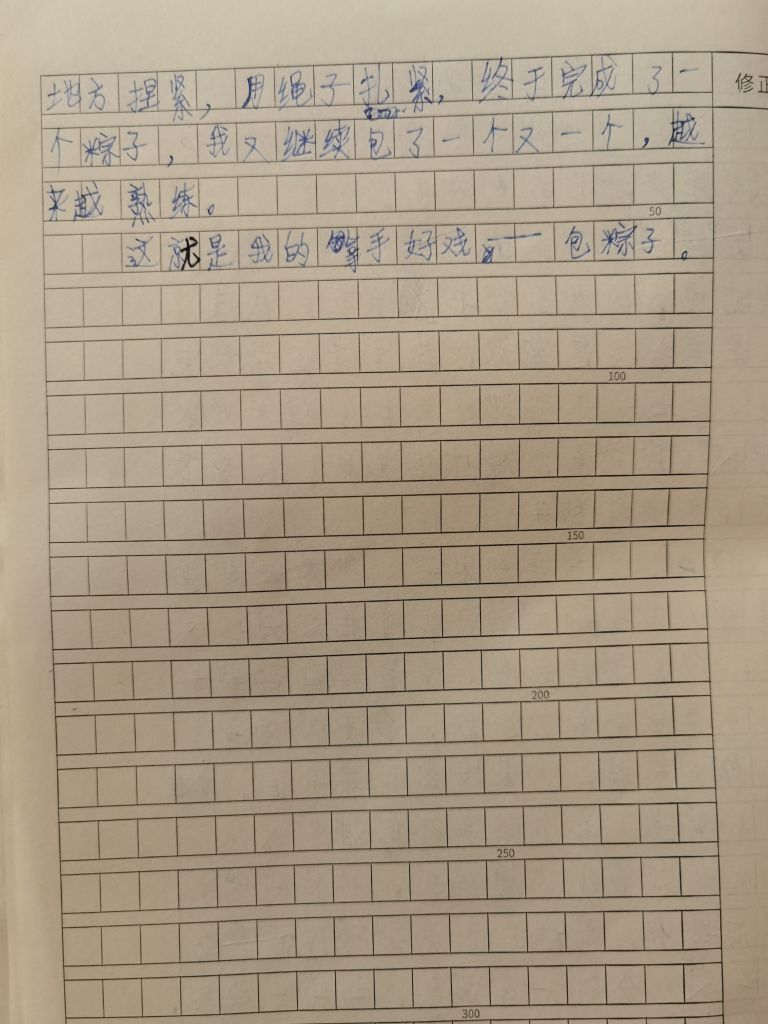 地方捏紧，用绳子扎紧，终于完成了一
修正
个粽子，我又继续包了一个又一个，越
来越熟练。
50
这就是我的拿手好戏——包粽子。
100
150
200
250
300